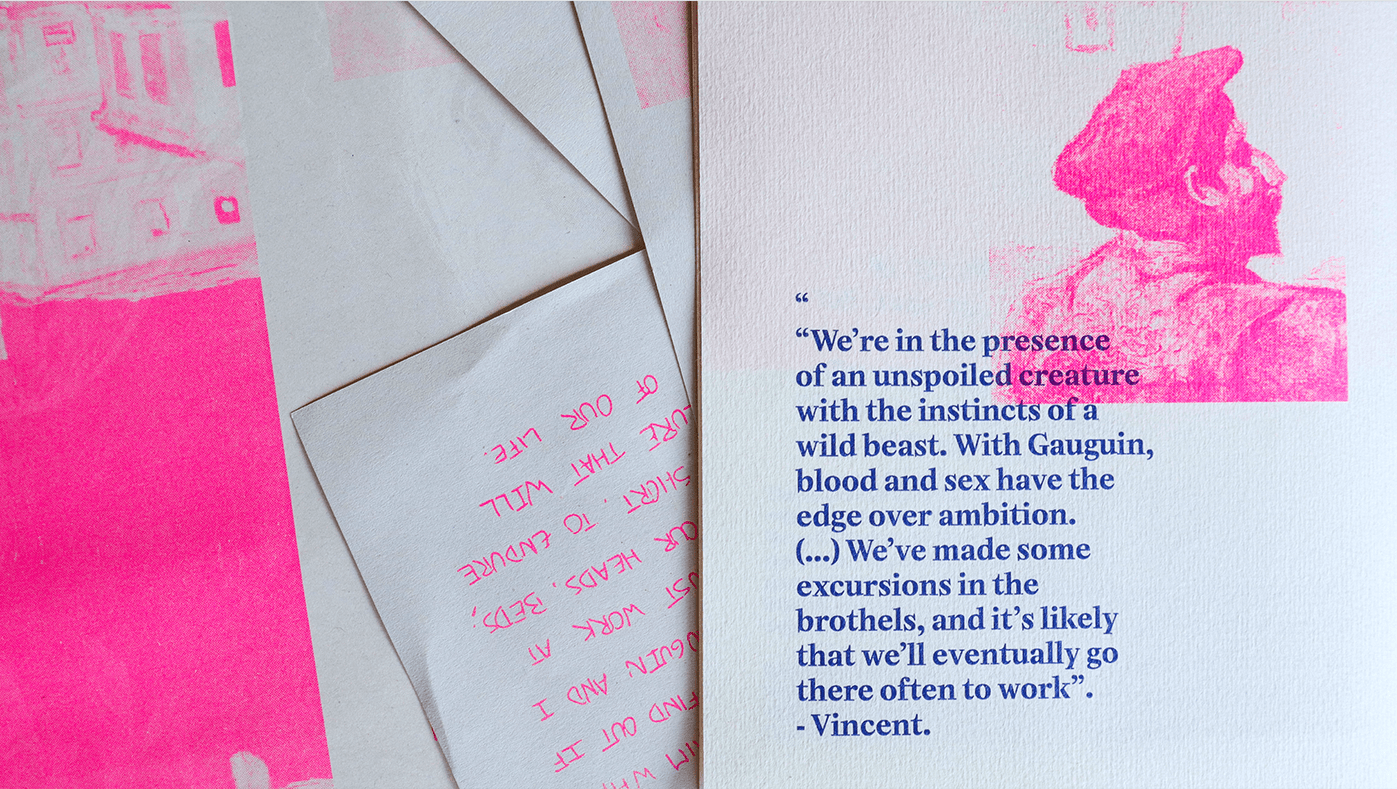 FIND OUT IF
GUIN AND I
UST WORK AT
OUR HEADS, BEDS,
SHORT, TO ENDURE
URE THAT WILL
OF OUR LIFE.
“
“We’re in the presence
of an unspoiled creature
with the instincts of a
wild beast. With Gauguin,
blood and sex have the
edge over ambition.
(...) We’ve made some
excursions in the
brothels, and it’s likely
that we’ll eventually go
there often to work”.
- Vincent.